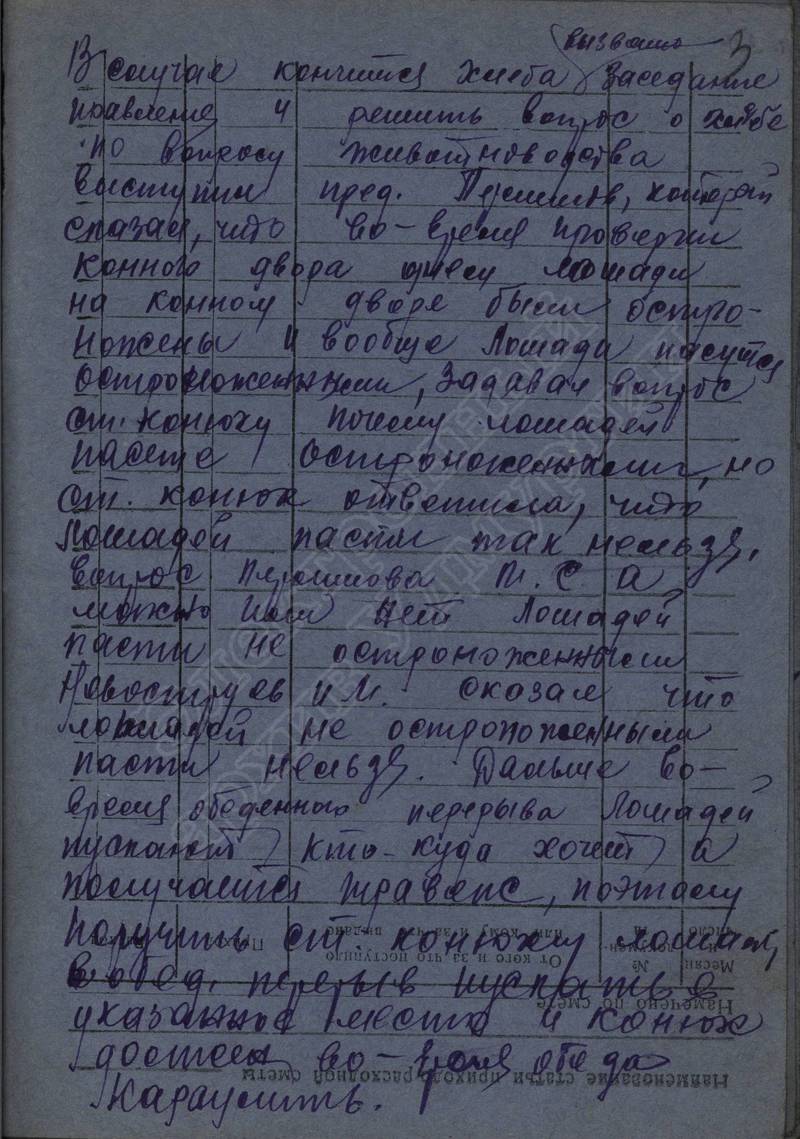 3
вызвать
В случае кончится хлеба заседание
правление и решить вопрос о хлебе
по вопросу животноводства
выступил пред. Перминов, который
сказал, что во-время проверки
конного двора лошади
на конном дворе были остро-
ножены и вообще лошади пасутся
остроноженными, задавал вопрос
ст. конюху почему лошадей
пасете остроноженными, но
ст. конюх ответила, что
лошадей пасти так нельзя.
вопрос Перминова П. С. а
можно или нет лошадей
пасти не остроноженными
Новоструев И М. сказал что
лошадей не остроноженными
пасти нельзя. Дальше во-
время обеденного перерыва лошадей
пускают кто-куда хочет а
получается травеж, поэтому
поручить ст. конюху лошадей
в обед. перерыв пускать в
указанное место и конюх
должен во-время обеда
караулить.
Месяц и число
№ докумен-
От кого и за что поступило
или кому и за что выдано
Приход
Намечено по смете
Наименование статьи приходо-расходной сметы